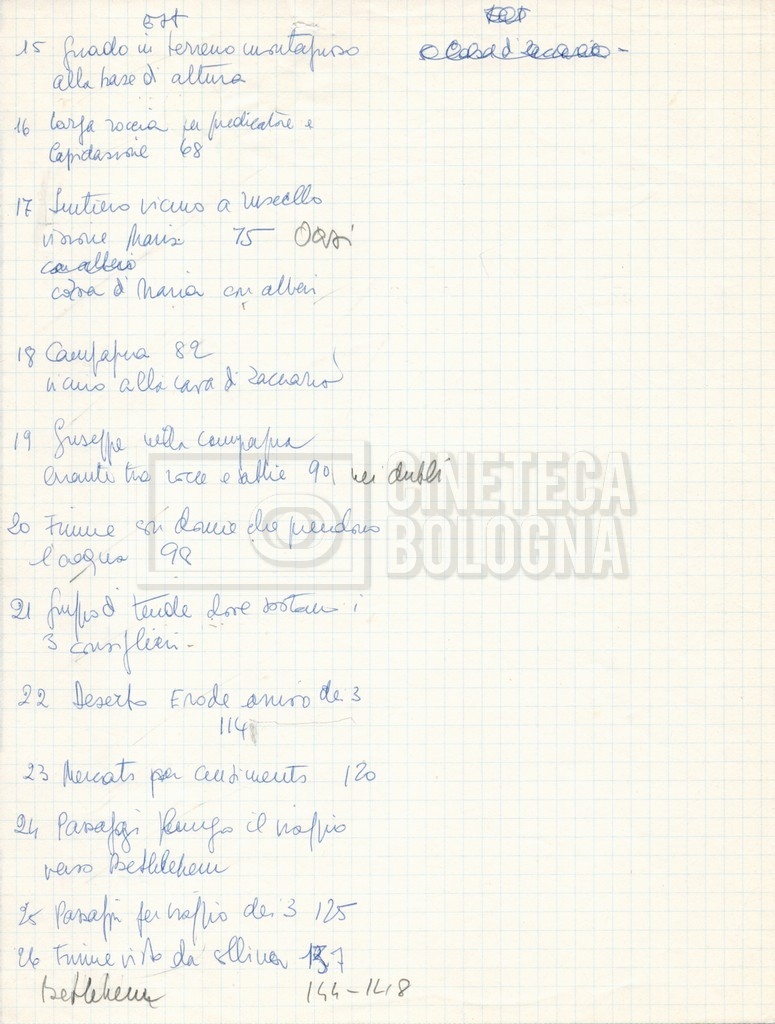 EST
15 Guado in terreno montagnoso
alla base di altura
16 larga roccia per predicatore e
lapidazione 68
17 Sentiero vicino a ruscello
visione Maria 75 Oasi
casa di Maria con alberi
18 Campagna 82
vicino alla casa di Zaccaria
19 Giuseppe nella campagna
tra rocce e sabbie 90 nei dubbi
20 Fiume con donne che prendono
l'acqua 98
21 Gruppo di tende dove sostano i
3 consiglieri -
22 Deserto Erode arrivo dei 3
114
23 Mercato per censimento 120
24 Passaggi lungo il viaggio
verso Bethlehem
25 Passaggi per viaggio dei 3 125
26 Fiume visto da collina 137
Bethlehem 144-148
EST
o Casa di Zaccaria -
CINETECA
BOLOGNA